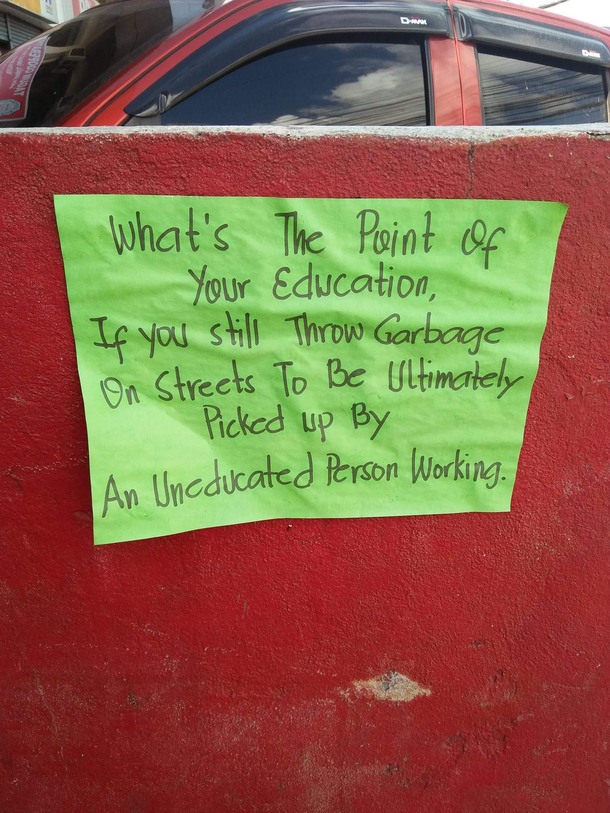 D-MAX
D-MAX
What's The Point Of
Your Education,
If you still Throw Garbage
On Streets To Be Ultimately
Picked up By
An Uneducated Person Working.